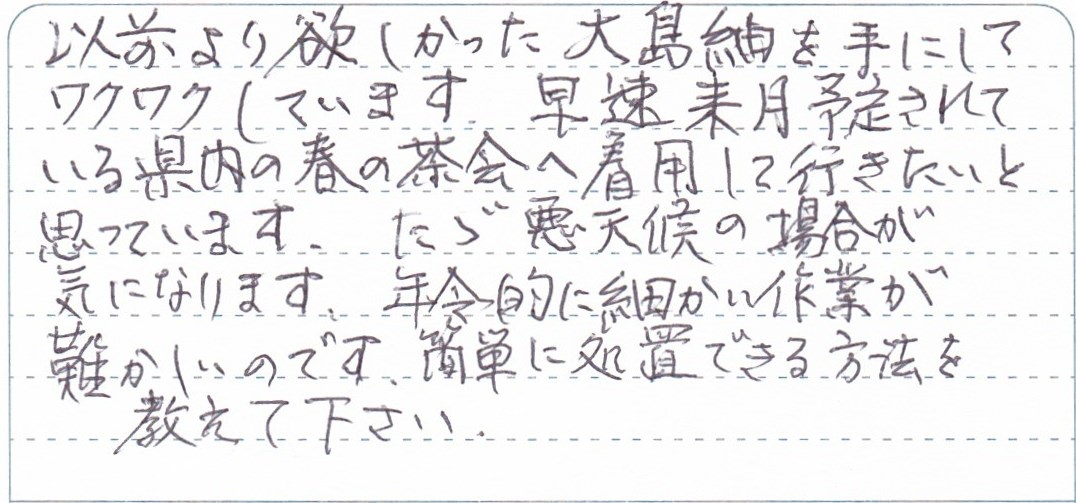 以前より欲しかった大島紬を手にして
ワクワクしています. 早速来月予定されて
いる県内の春の茶会へ着用して行きたいと
思っています. たゞ悪天候の場合が
気になります. 年令的に細かい作業が
難かしいのです. 簡単に処置できる方法を
教えて下さい.